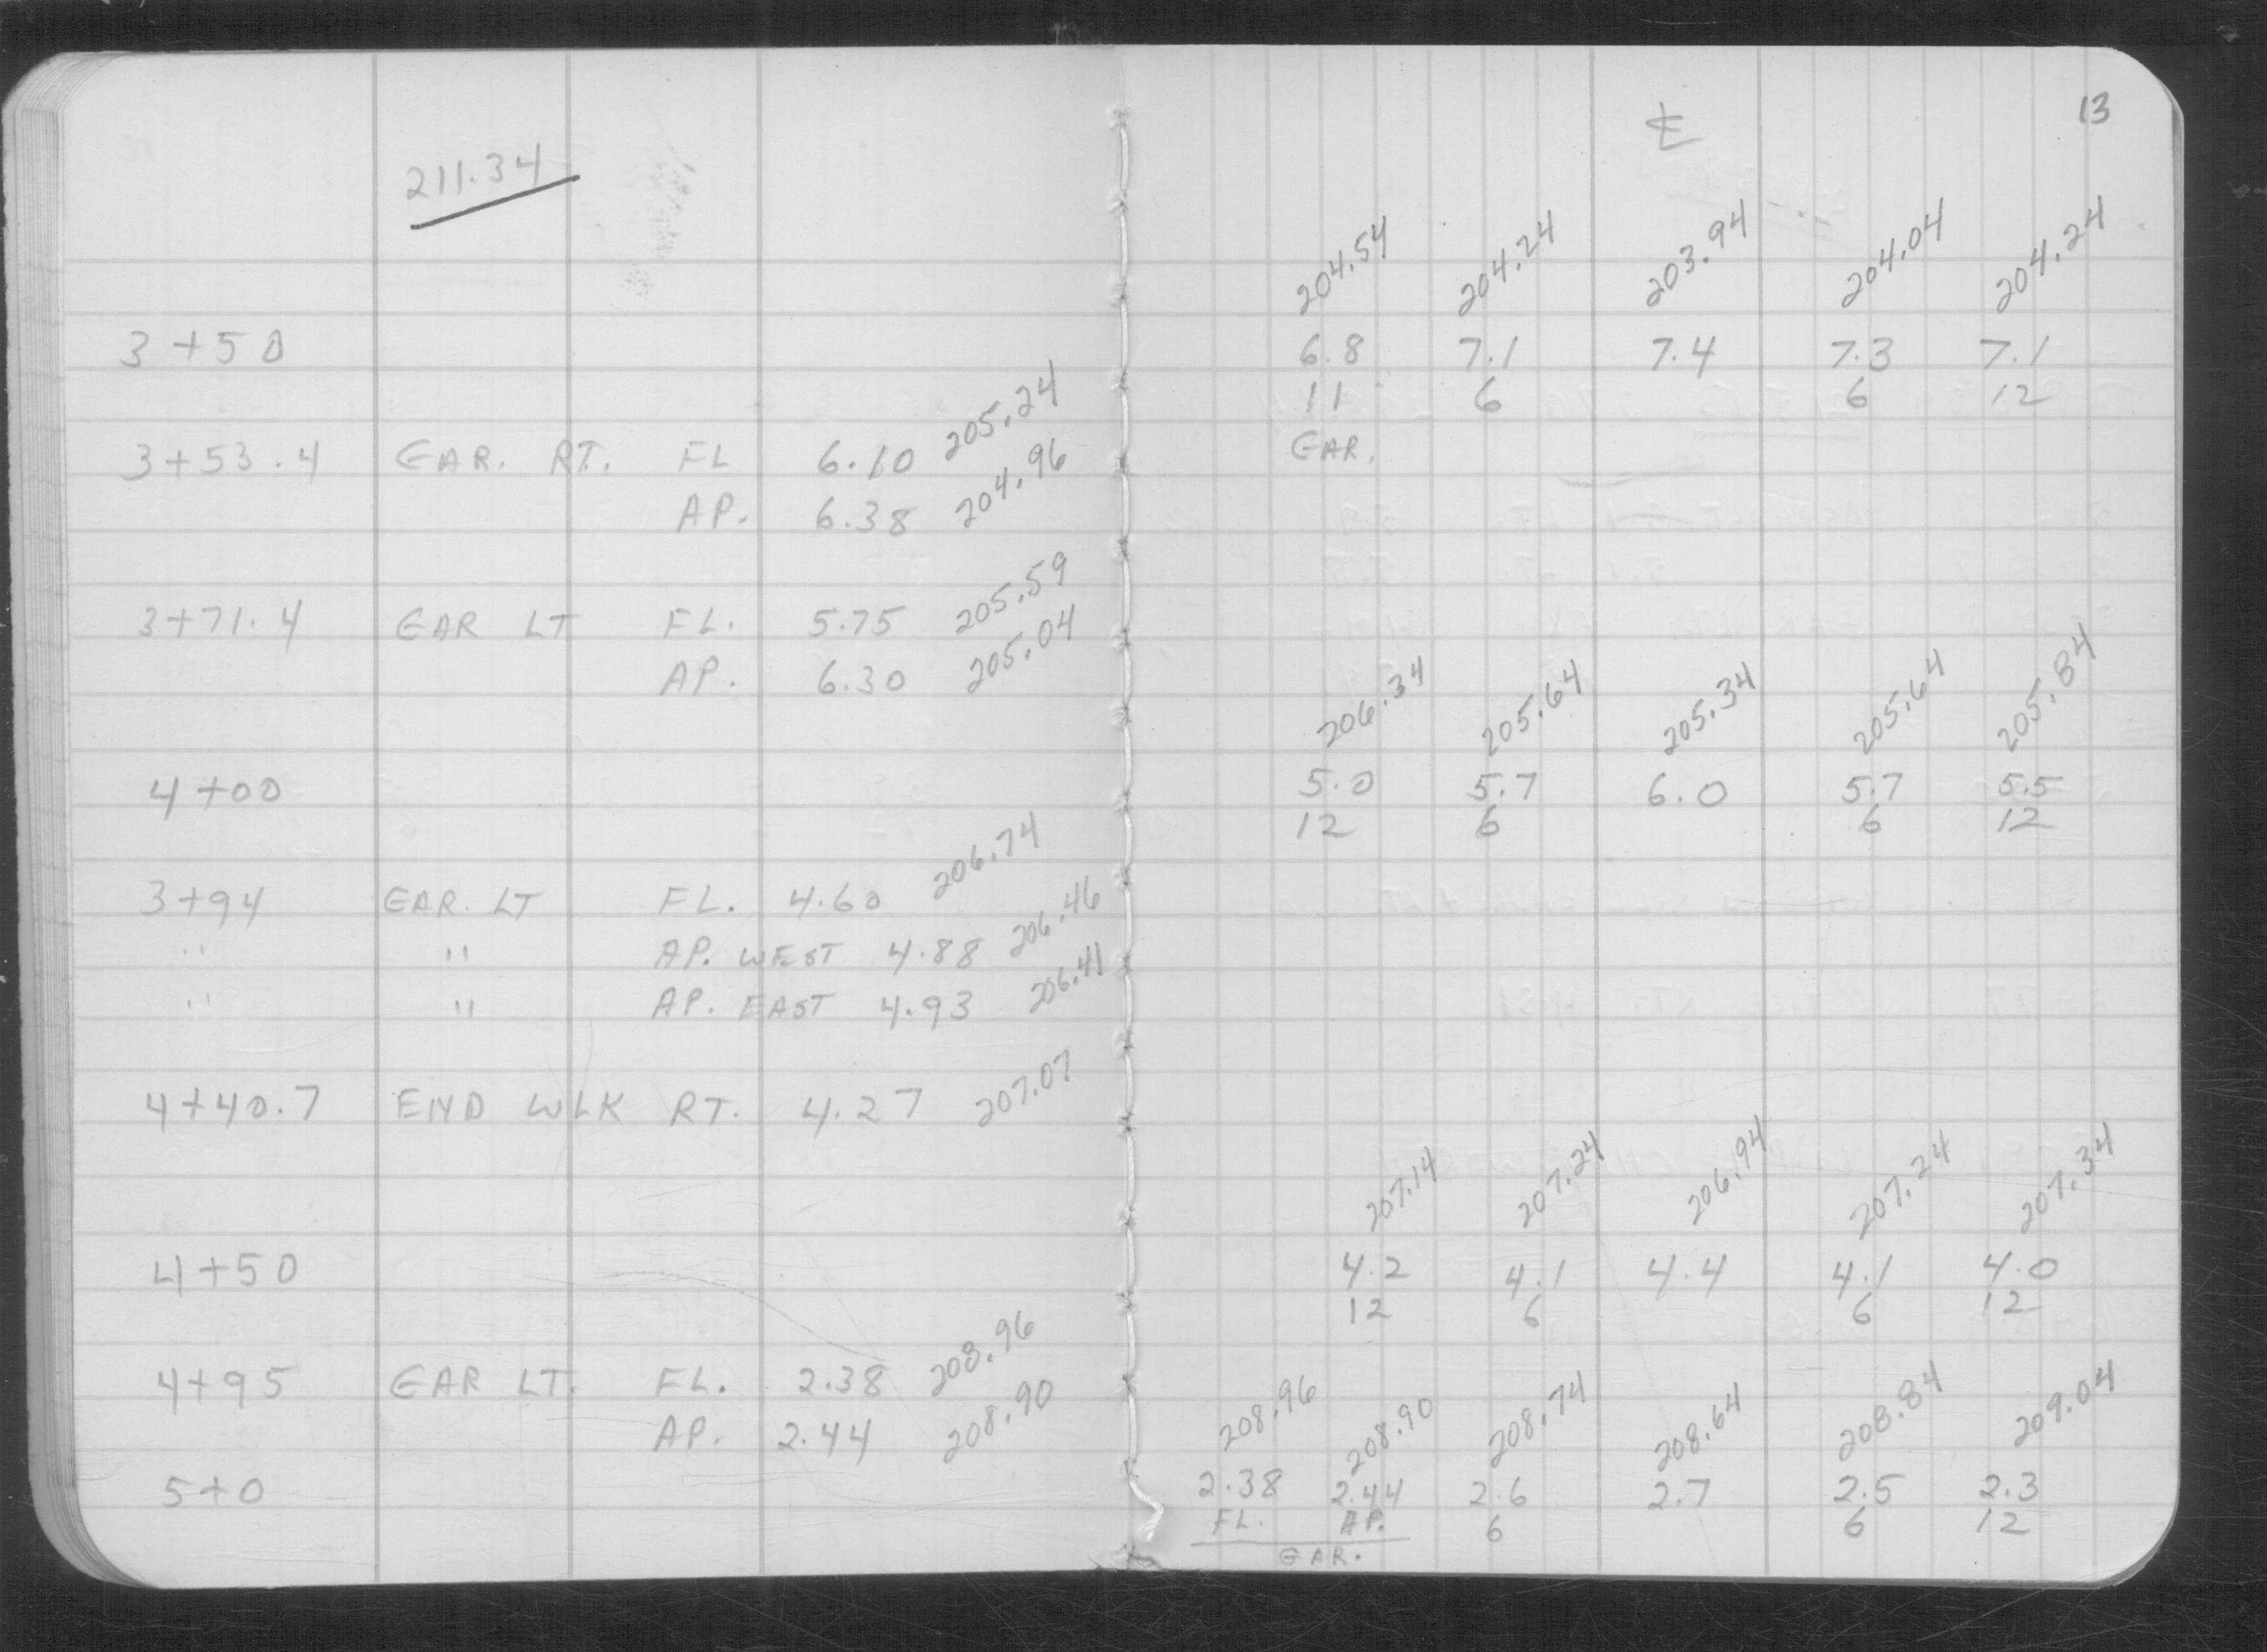 13
211.34
℄
204.54 204.24 203.94 204.04 204.24
3+50 6.8 7.1 7.4 7.3 7.1
11 6 6 12
3+53.4 GAR. RT. FL 6.10 205.24 GAR.
AP. 6.38 204.96
3+71.4 GAR LT FL. 5.75 205.59
AP. 6.30 205.04
206.34 205.64 205.34 205.64 205.84
4+00 5.0 5.7 6.0 5.7 5.5
12 6 6 12
3+94 GAR. LT FL. 4.60 206.74
" " AP. WEST 4.88 206.46
" " AP. EAST 4.93 206.41
4+40.7 END WLK RT. 4.27 207.07
207.14 207.24 206.94 207.24 207.34
4+50 4.2 4.1 4.4 4.1 4.0
12 6 6 12
4+95 GAR LT. FL. 2.38 208.96
AP. 2.44 208.90
208.96 208.90 208.74 208.64 208.84 209.04
5+0 2.38 2.44 2.6 2.7 2.5 2.3
FL. AP. 6 6 12
GAR.